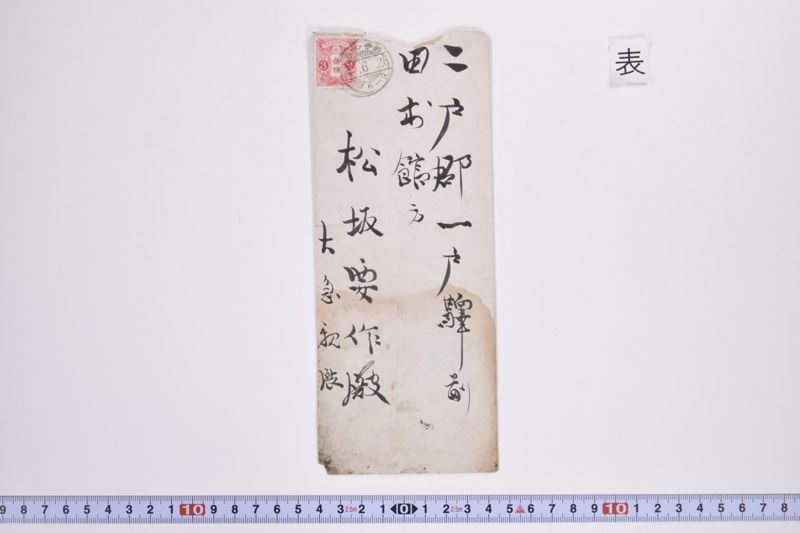 表
二戸郡一戸驛前
田村館方
松坂要作殿
大急親展
6 26
9 8 7 6 5 4 3 2 1 10 9 8 7 6 5 4 3 2.5m 2 1 0 1 2 2.5m 3 4 5 6 7 8 9 10 1 2 3 4 5 6 7 8